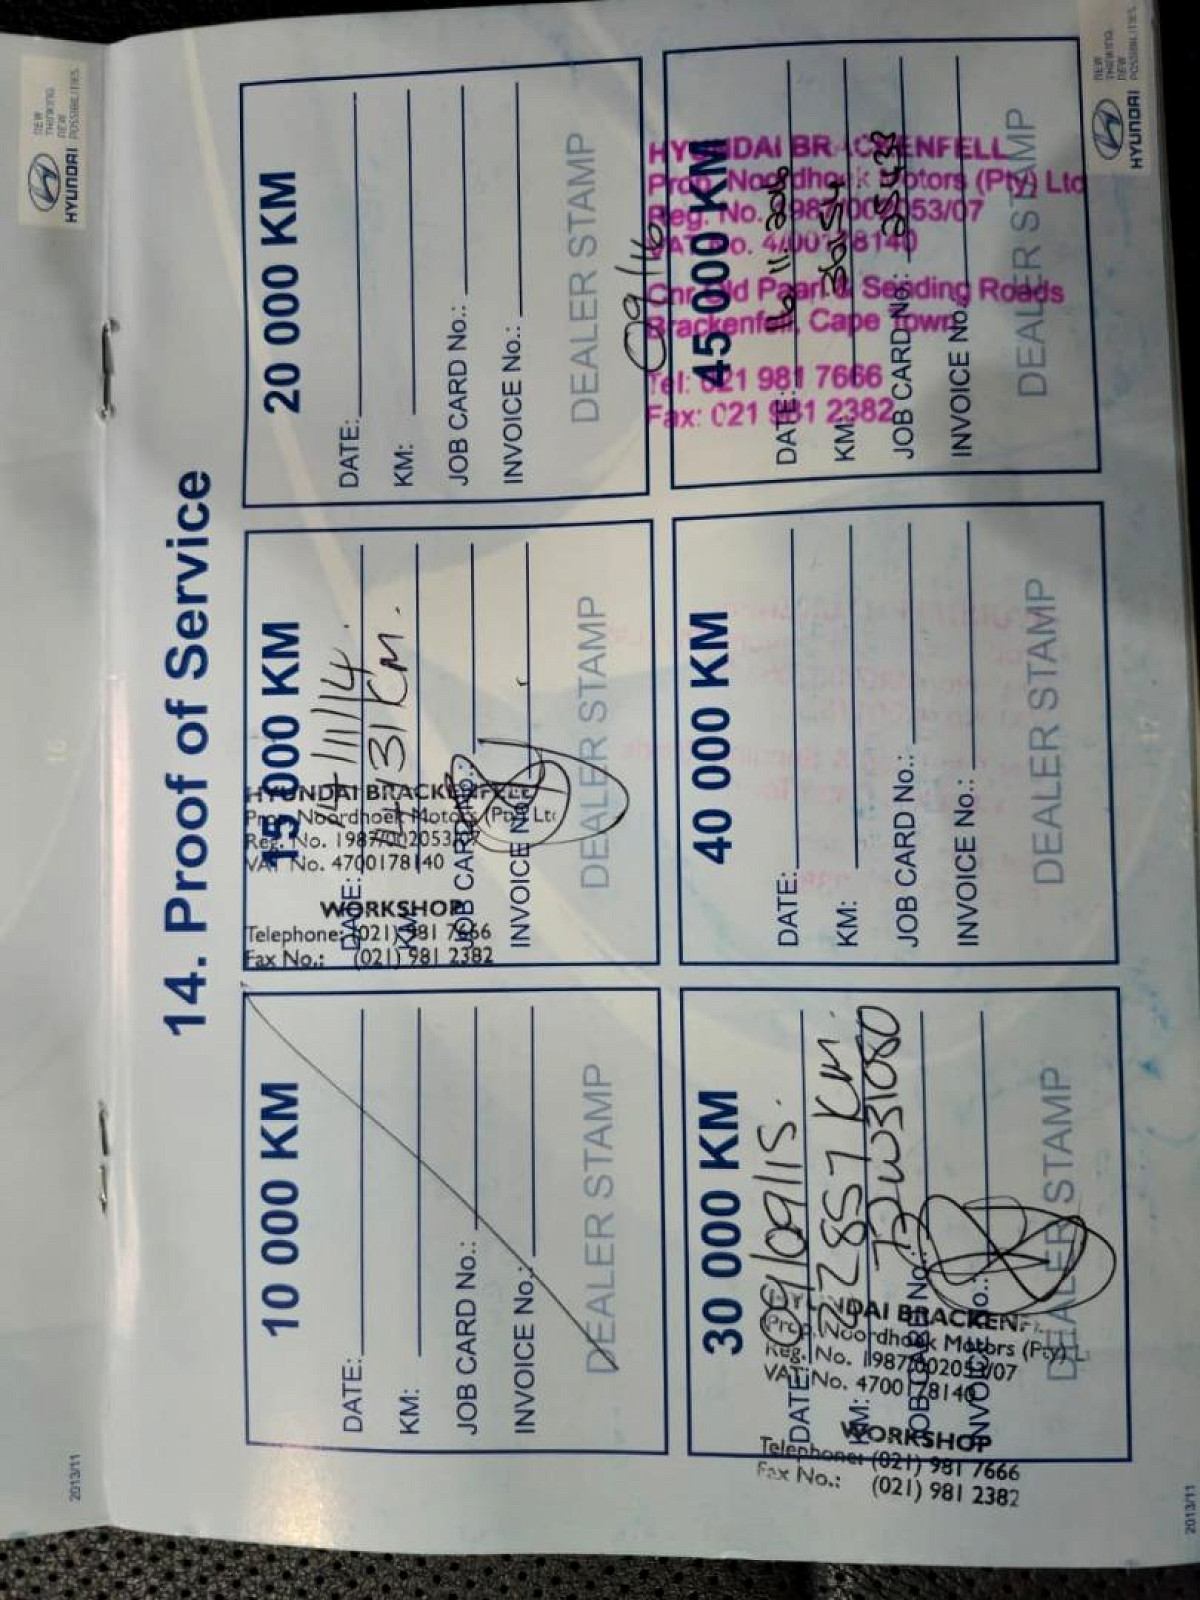 14. Proof of Service
10 000 KM
DATE:
KM:
JOB CARD No.:
INVOICE No.:
DEALER STAMP
15 000 KM
DATE: 14/11/14
KM: 14431 Km.
JOB CARD No.:
INVOICE No.:
DEALER STAMP
HYUNDAI BRACKENFELL
Prop. Noordhoek Motors (Pty) Ltd
Reg. No. 1987/002053/07
VAT No. 4700178140
WORKSHOP
Telephone: (021) 981 7666
Fax No.: (021) 981 2382
20 000 KM
DATE:
KM:
JOB CARD No.:
INVOICE No.:
DEALER STAMP
30 000 KM
DATE: 09/09/15.
KM: 22857 Km.
JOB CARD No.:
INVOICE No.:
DEALER STAMP
HYUNDAI BRACKENF
Prop. Noordhoek Motors (Pty) L
Reg. No. 1987/002053/07
VAT No. 4700178140
WORKSHOP
Telephone: (021) 981 7666
Fax No.: (021) 981 2382
40 000 KM
DATE:
KM:
JOB CARD No.:
INVOICE No.:
DEALER STAMP
09/16
45 000 KM
DATE:
KM: 30154
JOB CARD No.:
INVOICE No.
DEALER STAMP
HYUNDAI BRACKENFELL
Prop. Noordhoek Motors (Pty) Ltd
Reg. No. 1987/002053/07
VAT No. 4700178140
Cnr Old Paarl & Seading Roads
Brackenfell, Cape Town
Tel: 021 981 7666
Fax: 021 981 2382
2013/11
2013/11
HYUNDAI
NEW
THINKING.
NEW
POSSIBILITIES.
HYUNDAI
NEW
THINKING.
NEW
POSSIBILITIES.